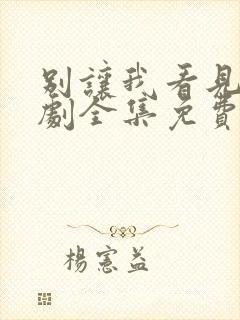 別讓我看見
劇全集免費
楊憲益